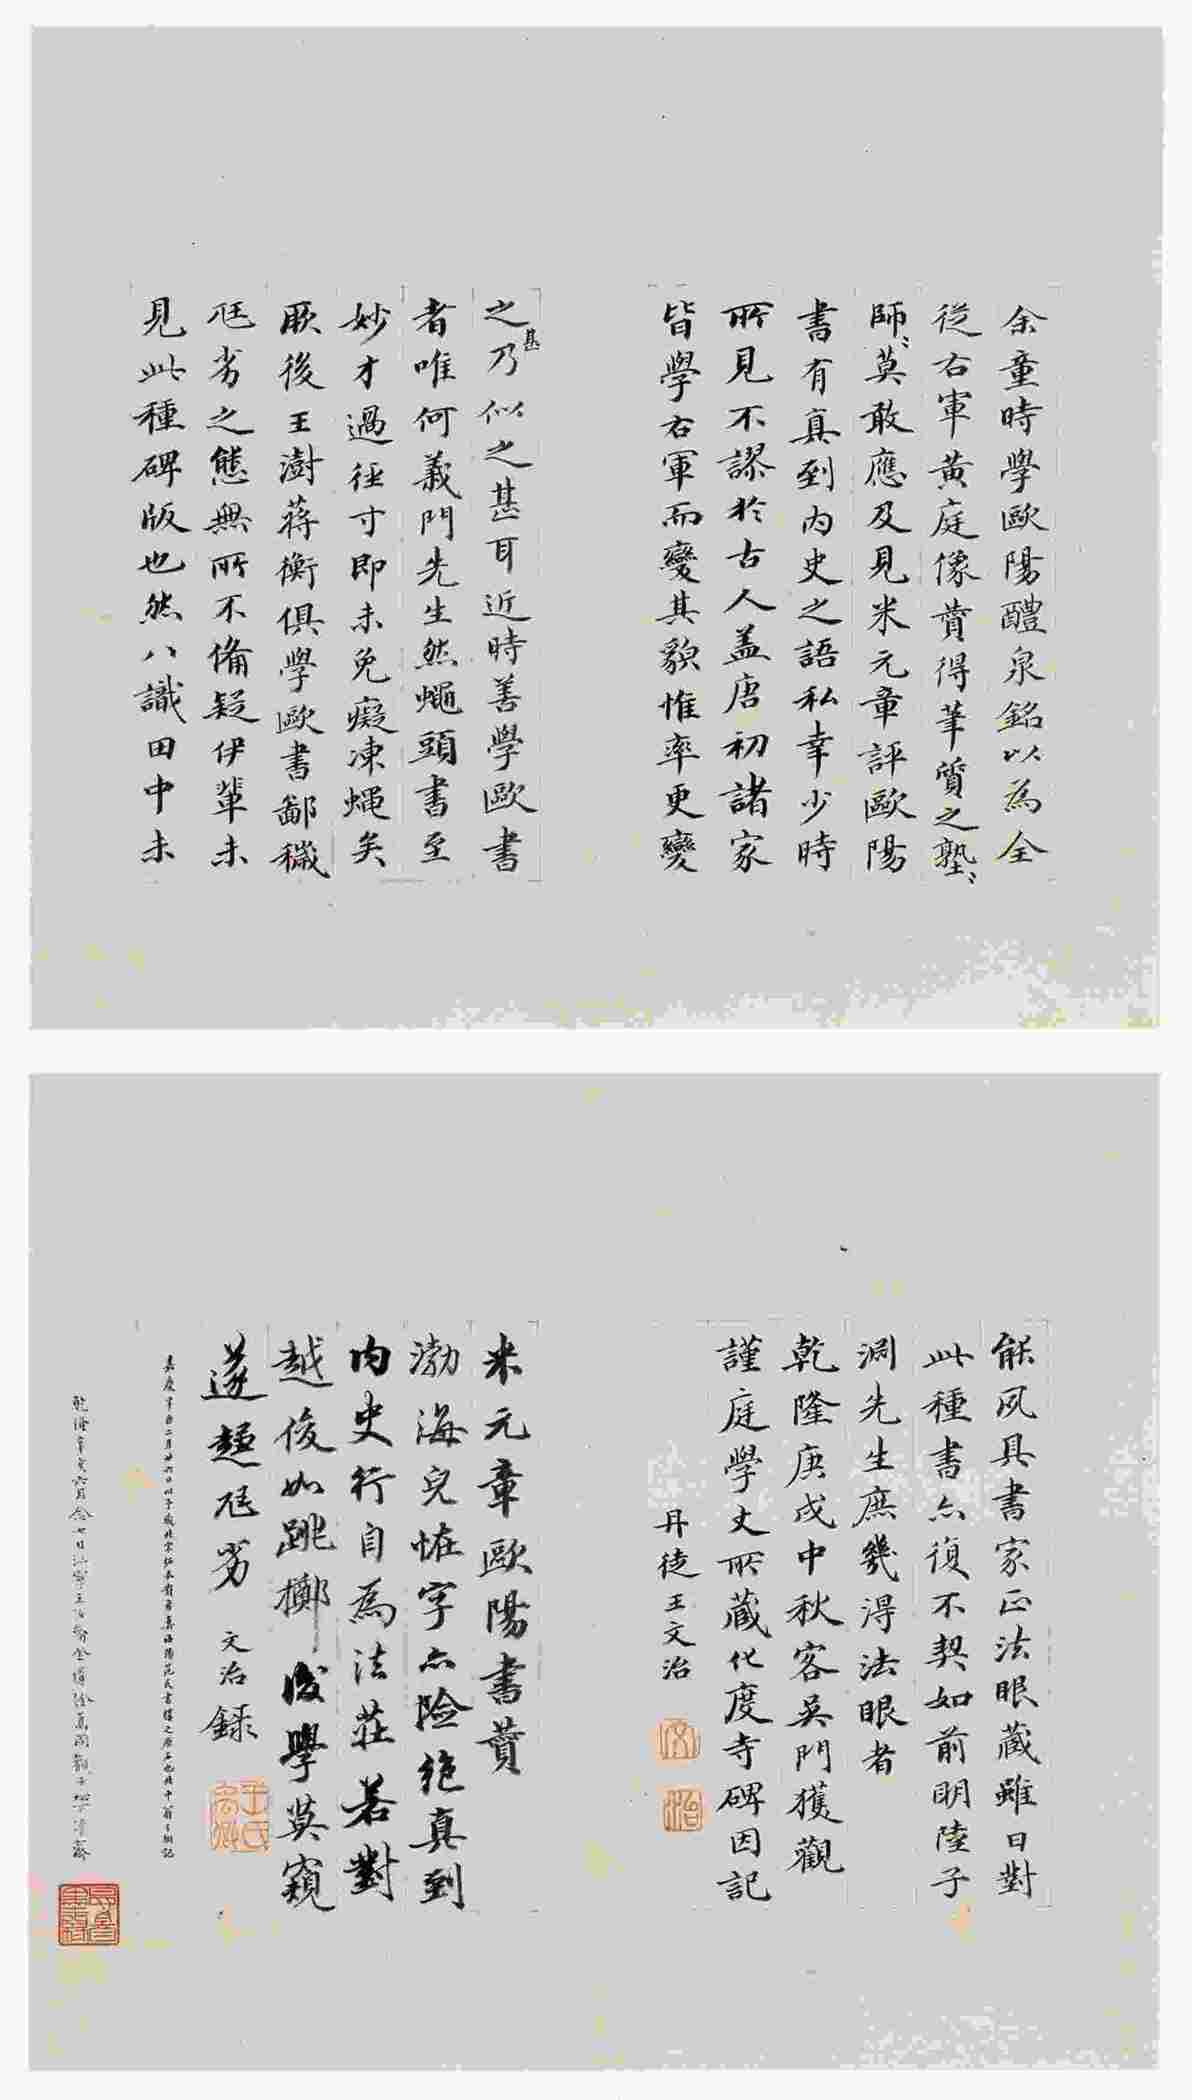 余童時學歐陽醴泉銘以為全
從右軍黃庭像贊得筆質之塾
師莫敢應及見米元章評歐陽
書有真到內史之語私幸少時
所見不謬於古人盖唐初諸家
皆學右軍而變其貌惟率更變
之甚乃似之甚耳近時善學歐書
者唯何義門先生然蠅頭書至
妙才過徑寸即未免癡凍蠅矣
厥後王澍蔣衡俱學歐書鄙穢
尫劣之態無所不備疑伊輩未
見此種碑版也然八識田中未
能夙具書家正法眼藏雖日對
此種書亦復不契如前明陸子
淵先生庶幾得法眼者
乾隆庚戌中秋客吳門獲觀
謹庭學丈所藏化度寺碑因記
丹徒王文治
文
治
米元章歐陽書贊
渤海兒怪字亦險絕真到
內史行自為法莊若對
越俊如跳擲後學莫窺
遂趨尫劣 文治錄
嘉慶辛酉二月廿六日以予藏北宋拓本對看真洛陽范氏書樓之原石也北平翁方綱記
乾隆辛亥六月念七日